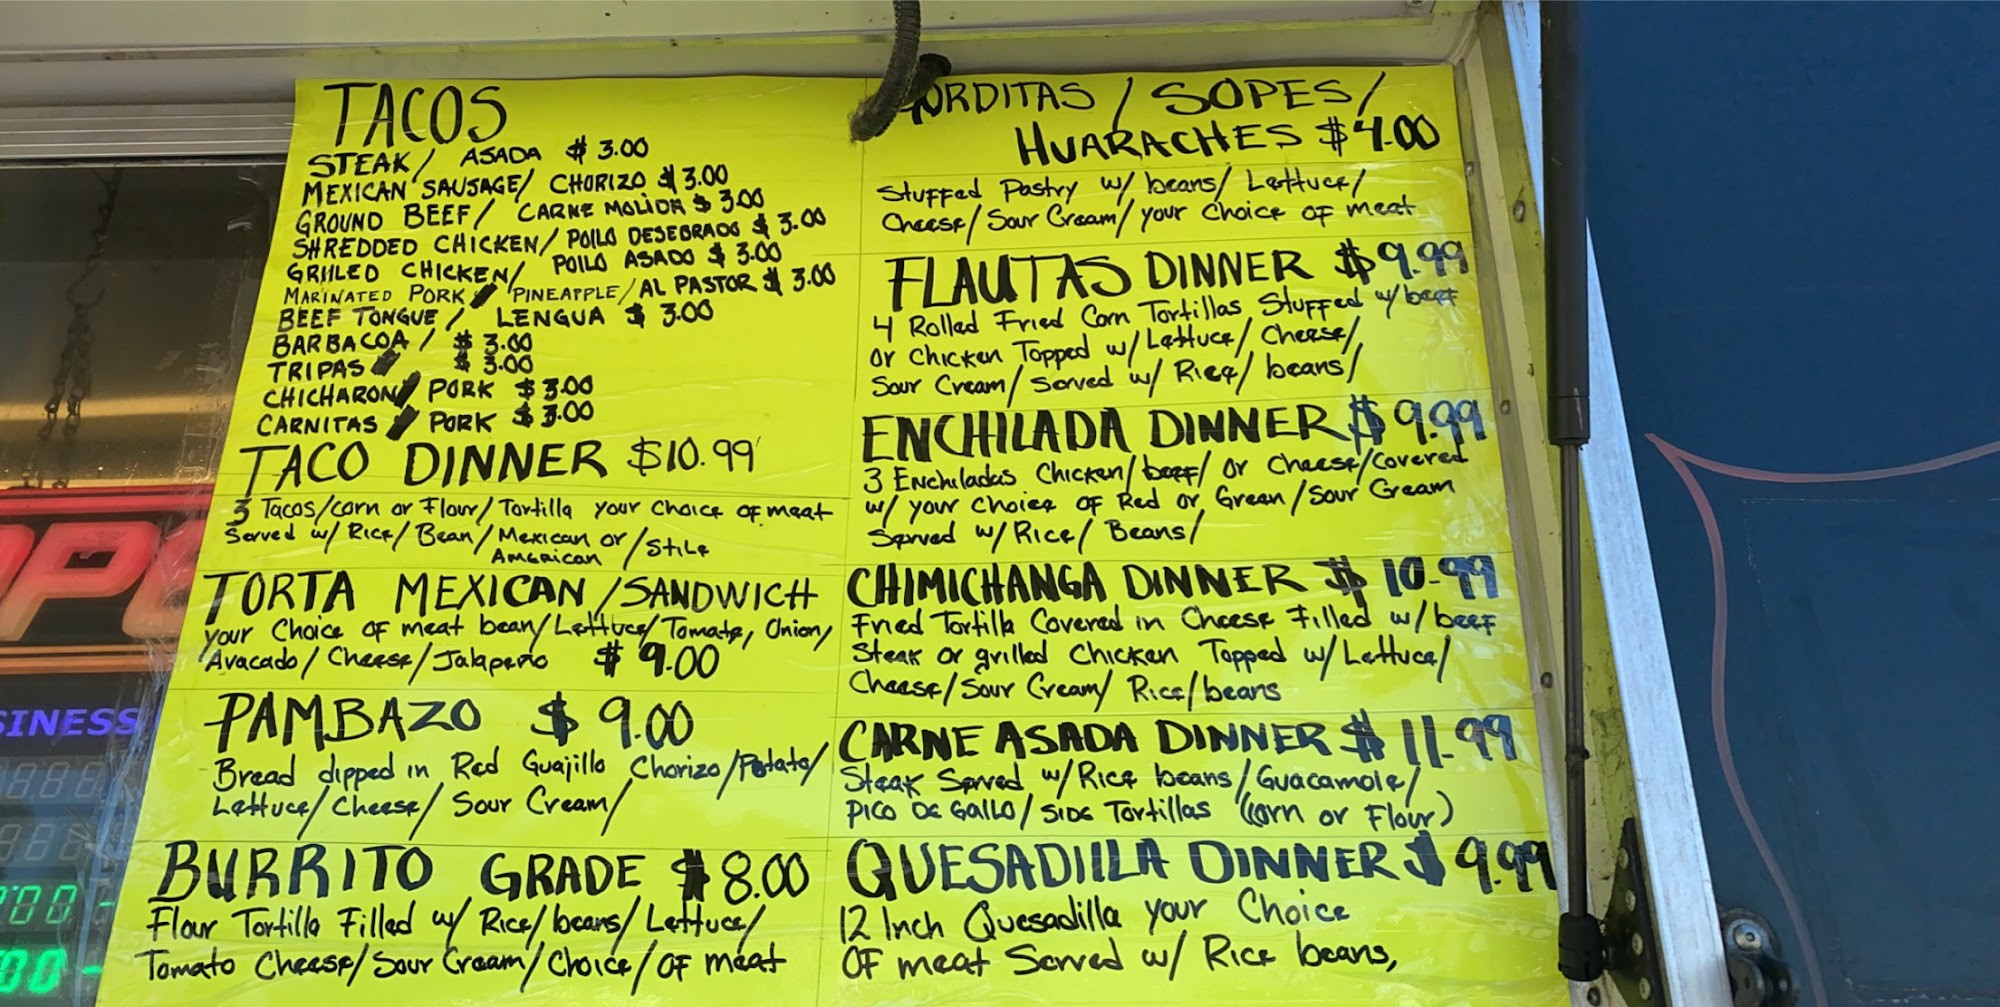 TACOS
STEAK/ ASADA $3.00
MEXICAN SAUSAGE/ CHORIZO $3.00
GROUND BEEF/ CARNE MOLIDA $3.00
SHREDDED CHICKEN/ POLLO DESEBRADO $3.00
GRILLED CHICKEN/ POLLO ASADO $3.00
MARINATED PORK PINEAPPLE/AL PASTOR $3.00
BEEF TONGUE/ LENGUA $3.00
BARBACOA/ $3.00
TRIPAS $3.00
CHICHARON PORK $3.00
CARNITAS PORK $3.00
TACO DINNER $10.99
3 Tacos/corn or Flour/Tortilla your Choice of meat
Served w/ Rice/ Bean/Mexican or /Stile
American
TORTA MEXICAN /SANDWICH
your Choice of meat bean/Lettuce/Tomato, Onion/
Avacado/ Cheese/Jalapeño $9.00
PAMBAZO $9.00
Bread dipped in Red Guajillo Chorizo/Potato/
Lettuce/Cheese/ Sour Cream/
BURRITO GRADE $8.00
Flour Tortilla Filled w/ Rice/beans/Lettuce/
Tomato Cheese/Sour Cream/Choice/OF meat
GORDITAS / SOPES/
HUARACHES $4.00
Stuffed Pastry w/ beans/ Lettuce/
Cheese/Sour Cream/your Choice OF meat
FLAUTAS DINNER $9.99
4 Rolled Fried Corn Tortillas Stuffed w/beef
Or Chicken Topped w/Lettuce/ Cheese/
Sour Cream/ Served w/ Rice/ beans/
ENCHILADA DINNER $9.99
3 Enchiladas Chicken/beef/ Or Cheese/Covered
w/ your Choice of Red or Green/Sour Cream
Served w/Rice/ Beans/
CHIMICHANGA DINNER $10.99
Fried Tortilla Covered in Cheese Filled w/beef
Steak Or grilled Chicken Topped w/Lettuce/
Cheese/Sour Cream/ Rice/beans
CARNE ASADA DINNER $11.99
Steak Served w/Rice beans/Guacamole/
PICO DE GALLO/ SIDE Tortillas (corn or Flour)
QUESADILLA DINNER $9.99
12 Inch Quesadilla your Choice
OF meat Served w/ Rice beans,
SINESS